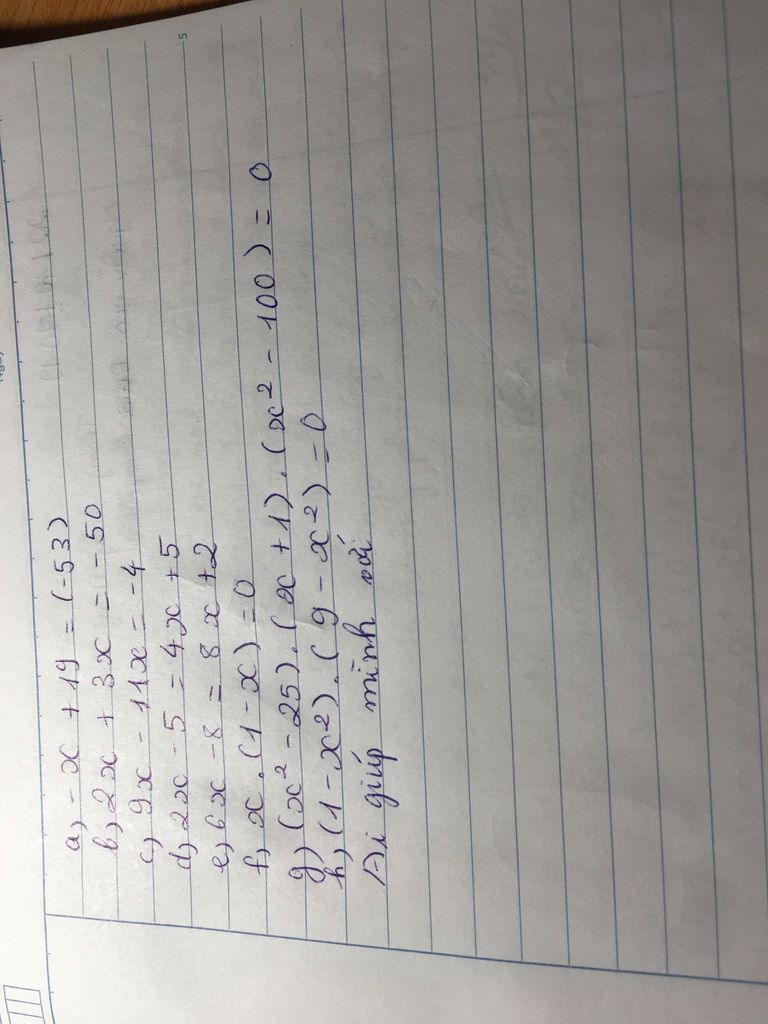 a) - x + 19 = (-53)
b) 2x + 3x = - 50
c) 9x - 11x = -4
d) 2x - 5 = 4x + 5
e) 6x - 8 = 8x + 2
f) x . (1 - x) = 0
g) (x² - 25) . (x + 1) . (x² - 100) = 0
h) (1 - x²) . (9 - x²) = 0
Ai giúp mình với
5